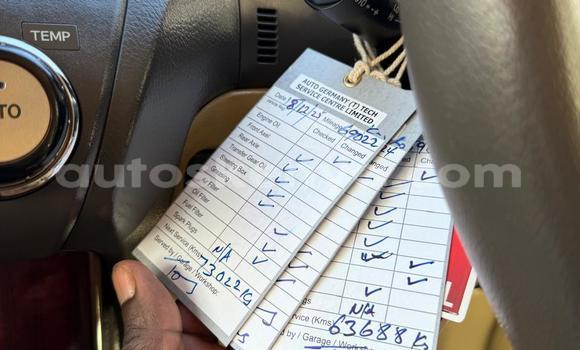 TEMP
AUTO GERMANY (T) TECH
SERVICE CENTRE LIMITED
Date 8/12/23 Mileage
Checked Changed
Engine Oil
Front Axel
Rear Axle
Transfer Gear Oil
Steering Box
Greasing
Air Filter
Oil Filter
Fuel Filter
Spark Plugs N/A
Next Service (Kms) 73022 Km
Served by / Garage / Workshop:
Changed
N/A
Service (Kms) 63688 Km
ed by / Garage / Workshop: